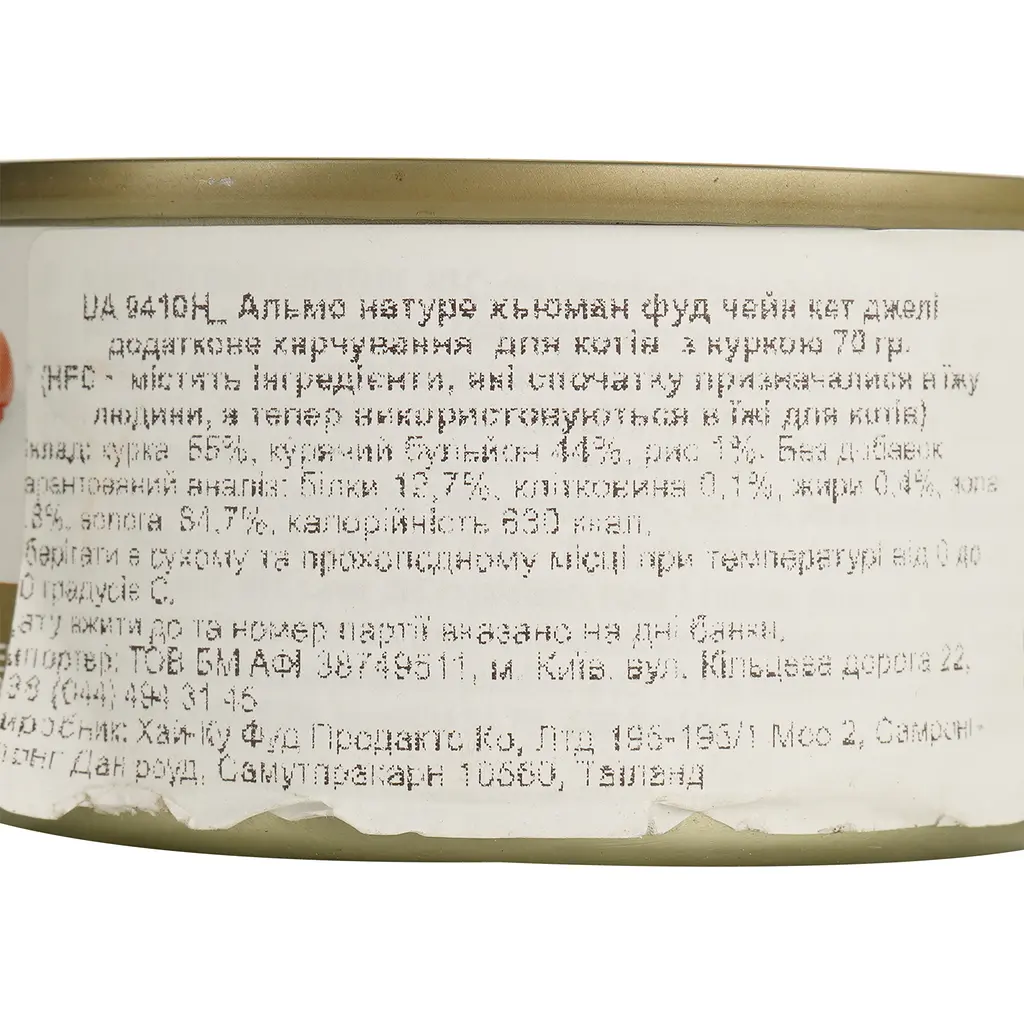 UA 9410H_ Альмо натуре хьюман фуд чейн кет джелі
додаткове харчування для котів з куркою 70 гр.
(HFC - містить інгредієнти, які спочатку призначалися в їжу
людини, а тепер використовуються в їжі для котів)
клад: курка 55%, курячий бульйон 44%, рис 1%. Без добавок
арантований аналіз: білки 12,7%, клітковина 0,1%, жири 0,4%, зола
.8%, волога 84.7%, калорійність 630 ккал.
берігати в сухому та прохолодному місці при температурі від 0 до
0 градусів С.
ату вжити до та номер партії вказано на дні банки.
мпортер: ТОВ БМ АФІ 38749511, м. Київ. вул. Кільцева дорога 22,
38 (044) 494 31 45
иробник: Хай-Ку Фуд Продактс Ко, Лтд 195-193/1 Моо 2, Самронг-
Дан роуд, Самутпракарн 10560, Таїланд